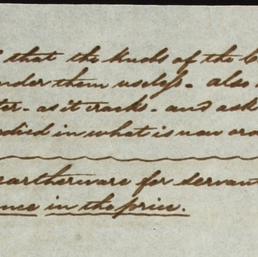 that the knobs of the C
nder them useless. also
ter - as it cracks - and ask
died in what is now or
earthenware for servant
ence in the price.